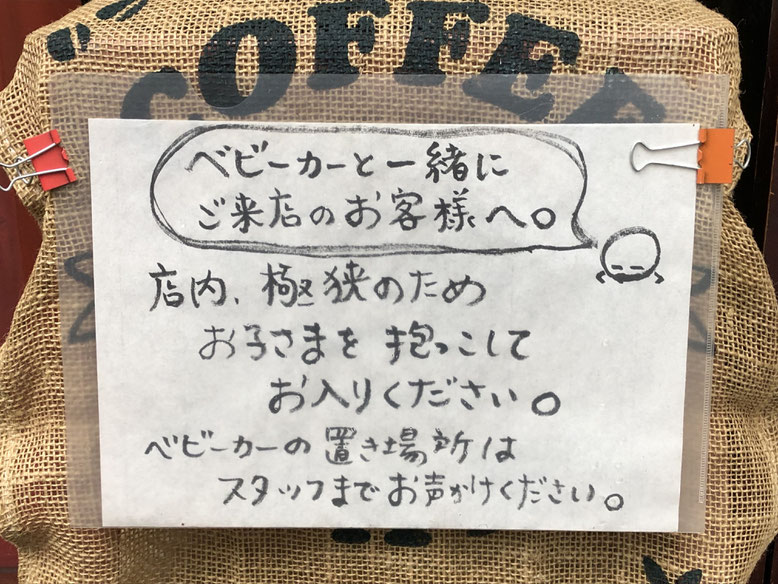 COFFEE
ベビーカーと一緒に
ご来店のお客様へ。
店内、極狭のため
お子さまを抱っこして
お入りください。
ベビーカーの置き場所は
スタッフまでお声かけください。